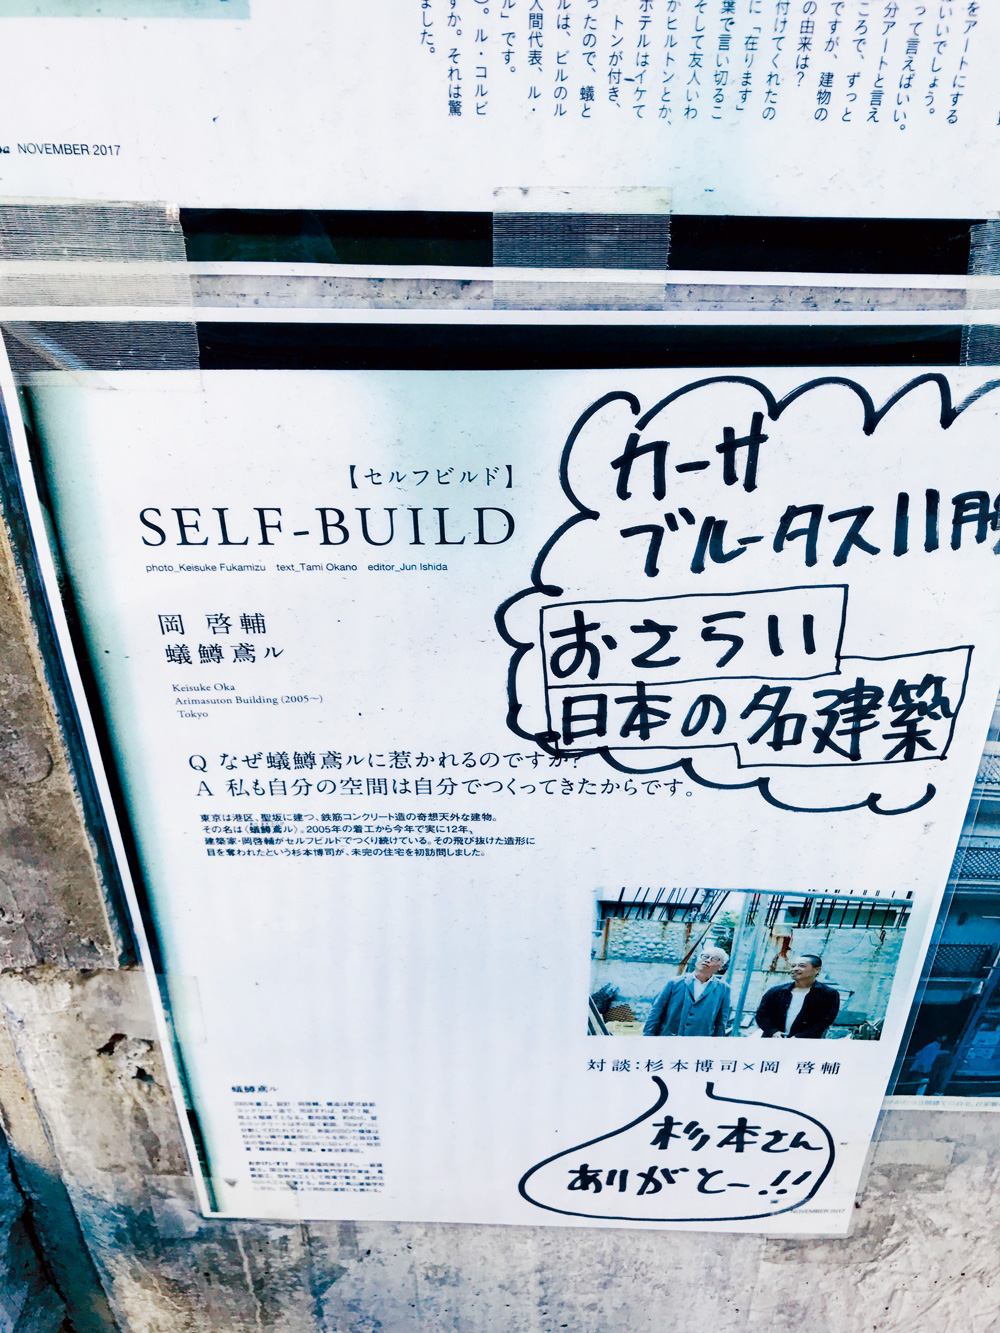 をアートにする
はいいでしょう。
って言えばいい。
分アートと言え
ころで、ずっと
ですが、建物の
の由来は？
付けてくれたの
に「在ります」
葉で言い切るこ
そして友人いわ
かヒルトンとか、
ホテルはイケて
トンが付き、
ったので、蟻と
ルは、ビルのル
人間代表、ル・
ル」です。
）。ル・コルビ
すか。それは驚
ました。
NOVEMBER 2017
【セルフビルド】
SELF-BUILD
photo_Keisuke Fukamizu text_Tami Okano editor_Jun Ishida
カーサ
ブルータス11月
おさらい
日本の名建築
岡 啓輔
蟻鱒鳶ル
Keisuke Oka
Arimasuton Building (2005〜)
Tokyo
Q なぜ蟻鱒鳶ルに惹かれるのですか？
A 私も自分の空間は自分でつくってきたからです。
東京は港区、聖坂に建つ、鉄筋コンクリート造の奇想天外な建物。
その名は〈蟻鱒鳶ル〉。2005年の着工から今年で実に12年、
建築家・岡啓輔がセルフビルドでつくり続けている。その飛び抜けた造形に
目を奪われたという杉本博司が、未完の住宅を初訪問しました。
対談：杉本博司×岡 啓輔
杉本さん
ありがとー!!
蟻鱒鳶ル
NOVEMBER 2017